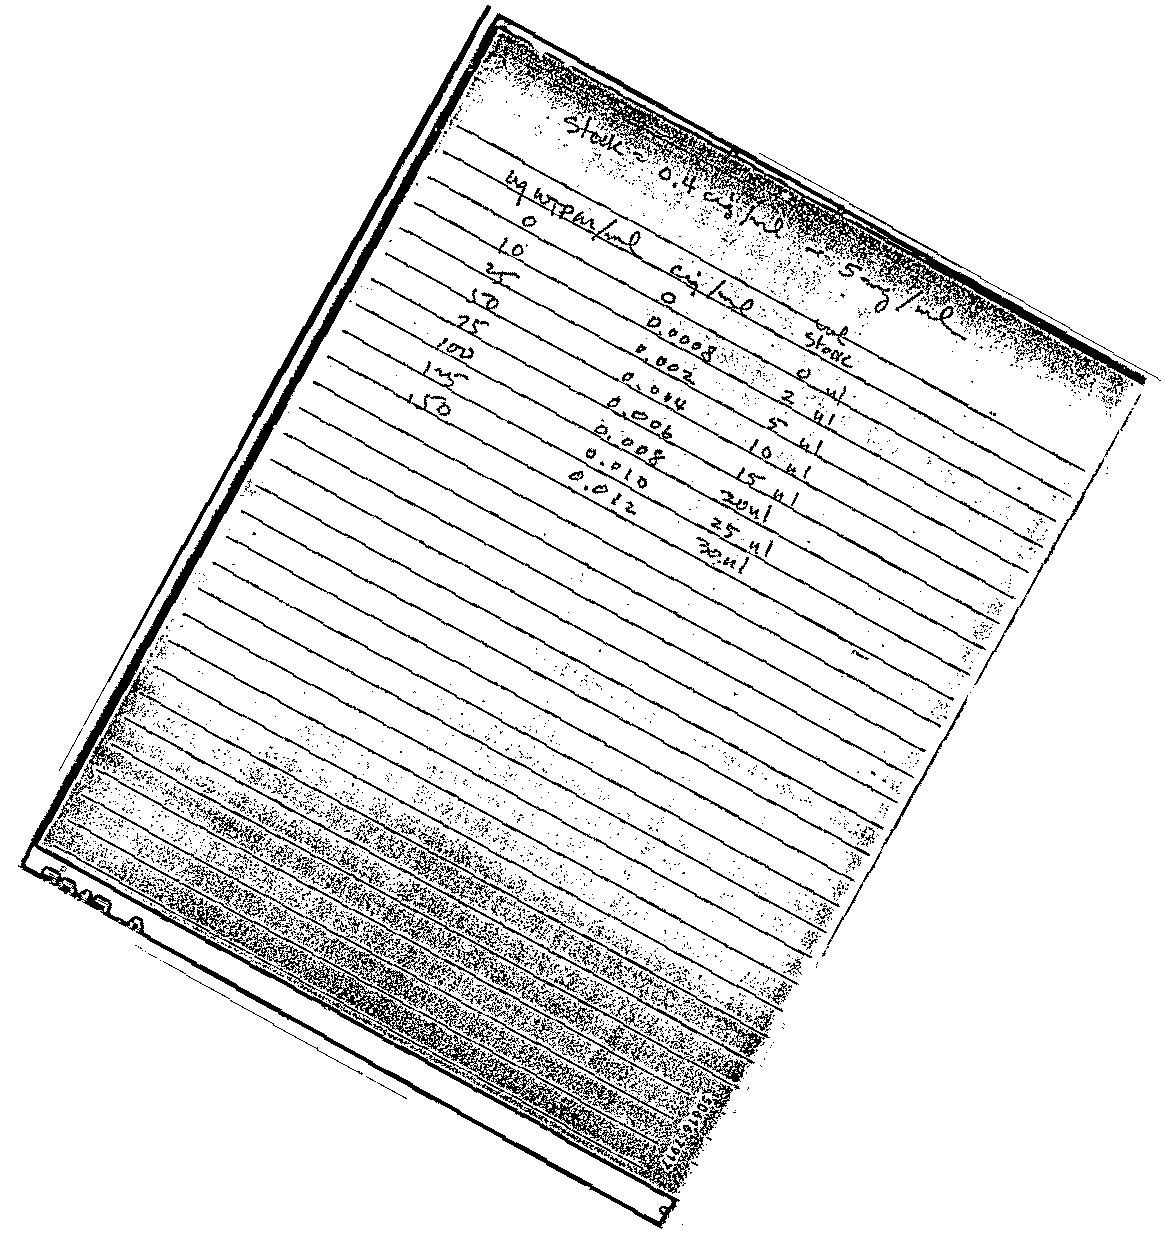 Stock ~ 0.4 cig/ml ~ 5 mg/ml
ug WTPM/ml cig/ml stock
0 0 0 ul
10 0.0008 2 ul
25 0.002 5 ul
50 0.004 10 ul
75 0.006 15 ul
100 0.008 20 ul
125 0.010 25 ul
150 0.012 30 ul